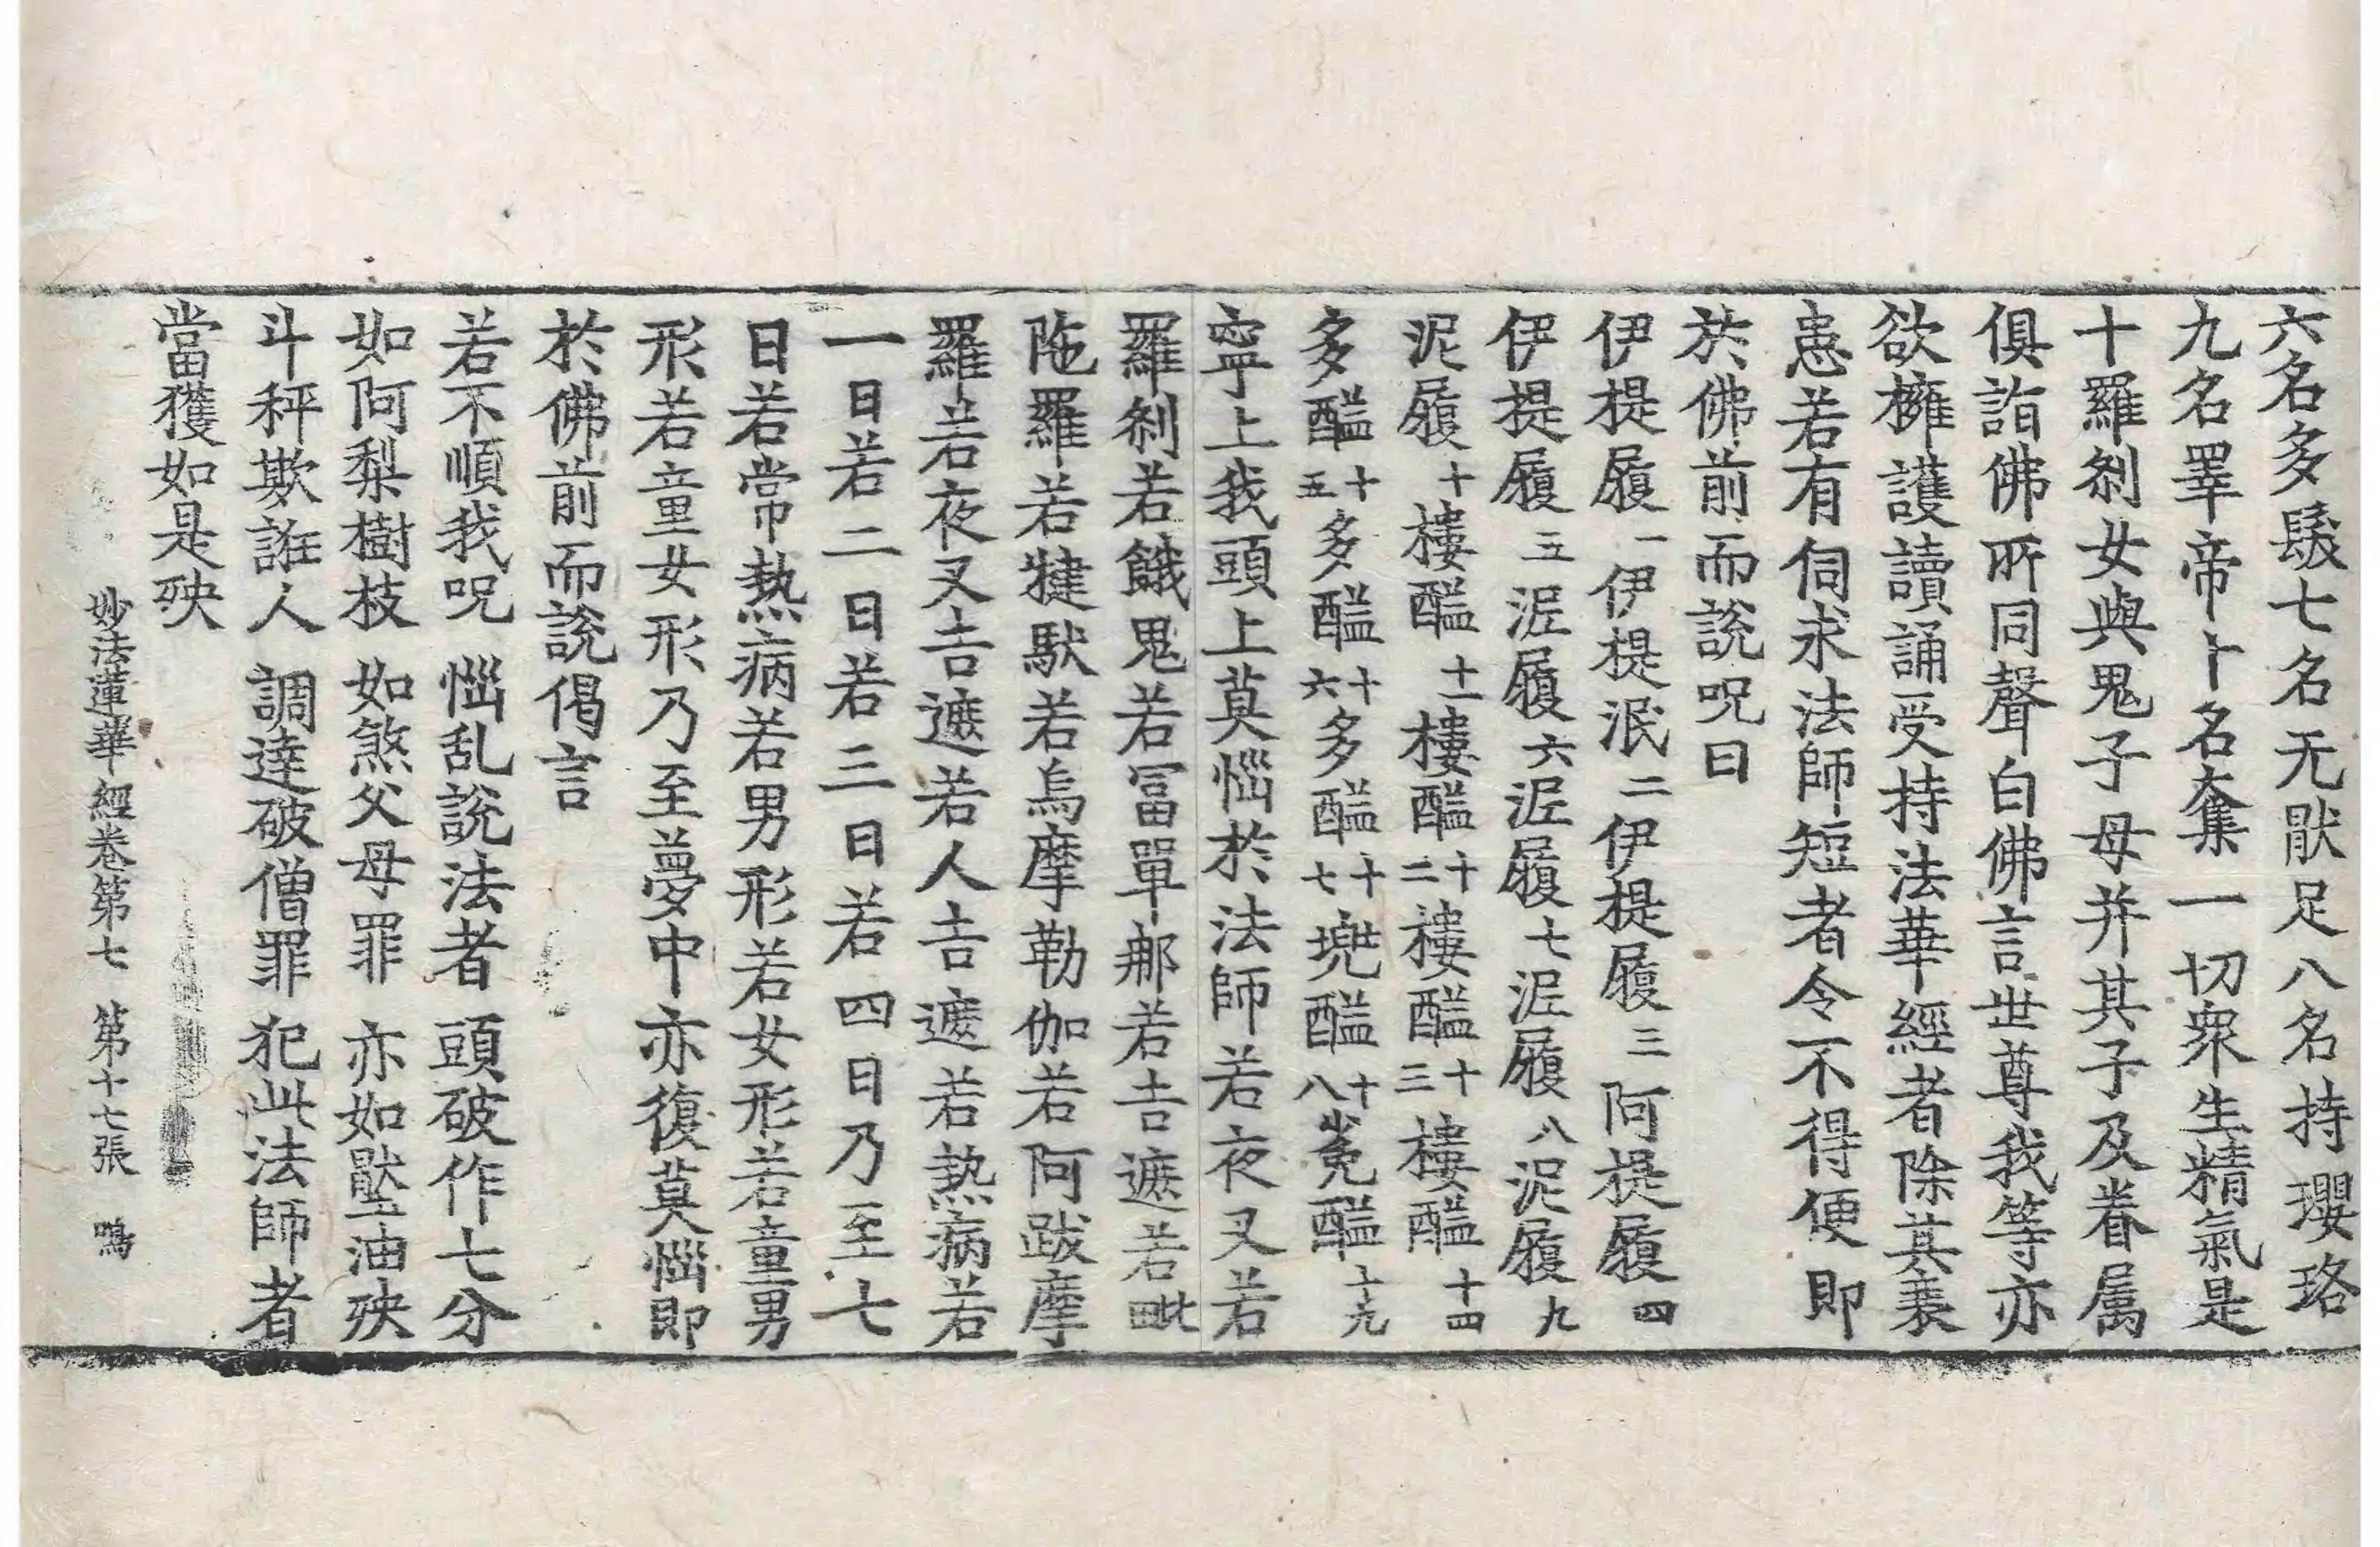 六名多髮七名无猒足八名持瓔珞
九名睪帝十名奪一切衆生精氣是
十羅剎女與鬼子母并其子及眷属
俱詣佛所同聲白佛言世尊我等亦
欲擁護讀誦受持法華經者除其衰
患若有伺求法師短者令不得便即
於佛前而說呪曰
伊提履一伊提泯二伊提履三阿提履四
伊提履五泥履六泥履七泥履八泥履九
泥履十樓醯十一樓醯十二樓醯十三樓醯十四
多醯十五多醯十六多醯十七兠醯十八㝹醯十九
寧上我頭上莫惱於法師若夜叉若
羅剎若餓鬼若冨單那若吉遮若毗
陁羅若犍馱若烏摩勒伽若阿跋摩
羅若夜叉吉遮若人吉遮若熱病若
一日若二日若三日若四日乃至七
日若常熱病若男形若女形若童男
形若童女形乃至夢中亦復莫惱即
於佛前而說偈言
若不順我呪 惱乱說法者 頭破作七分
如阿梨樹枝 如煞父母罪 亦如壓油殃
斗秤欺誑人 調達破僧罪 犯此法師者
當獲如是殃
妙法蓮華經卷第七 第十七張 鳴